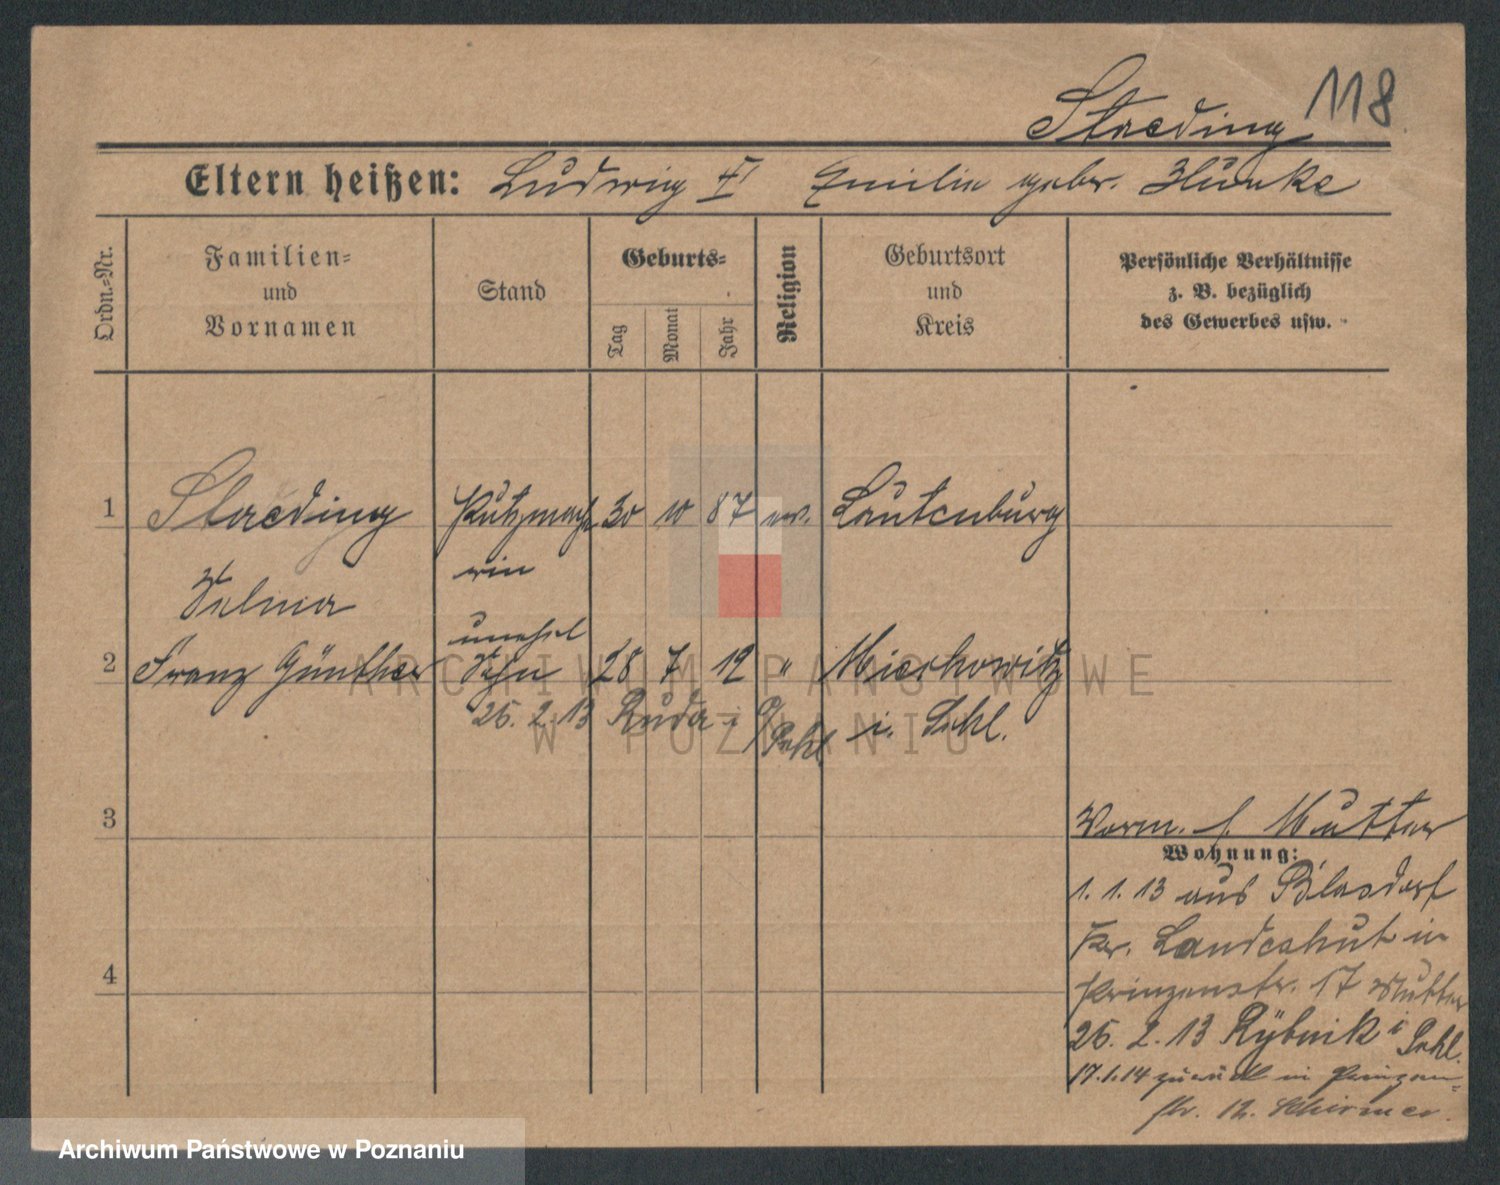 118
Staeding
Eltern heißen: Ludwig II Emilie gebr. Hünke
Ordn.-Nr.
Familien-
und
Vornamen
Stand
Geburts-
Tag
Monat
Jahr
Religion
Geburtsort
und
Kreis
Persönliche Verhältnisse
z. B. bezüglich
des Gewerbes usw.
1 Staeding Putzmache 30 10 87 ev. Lautenburg
rin
Selma
unehel
2 Franz Günther Sohn 28 7 12 " Miechowitz
25. 2. 13 Ruda i O/Schl i. Schl.
3
Vorm. s. Mutter
Wohnung:
1. 1. 13 aus Blasdorf
Kr. Landeshut in
4
Prinzenstr. 17 Mutter
25. 2. 13 Rÿbnik i Schl.
17.1.14 zurück in Prinzen-
str. 12. Schirmer.
ARCHIWUM PAŃSTWOWE
W POZNANIU
Archiwum Państwowe w Poznaniu